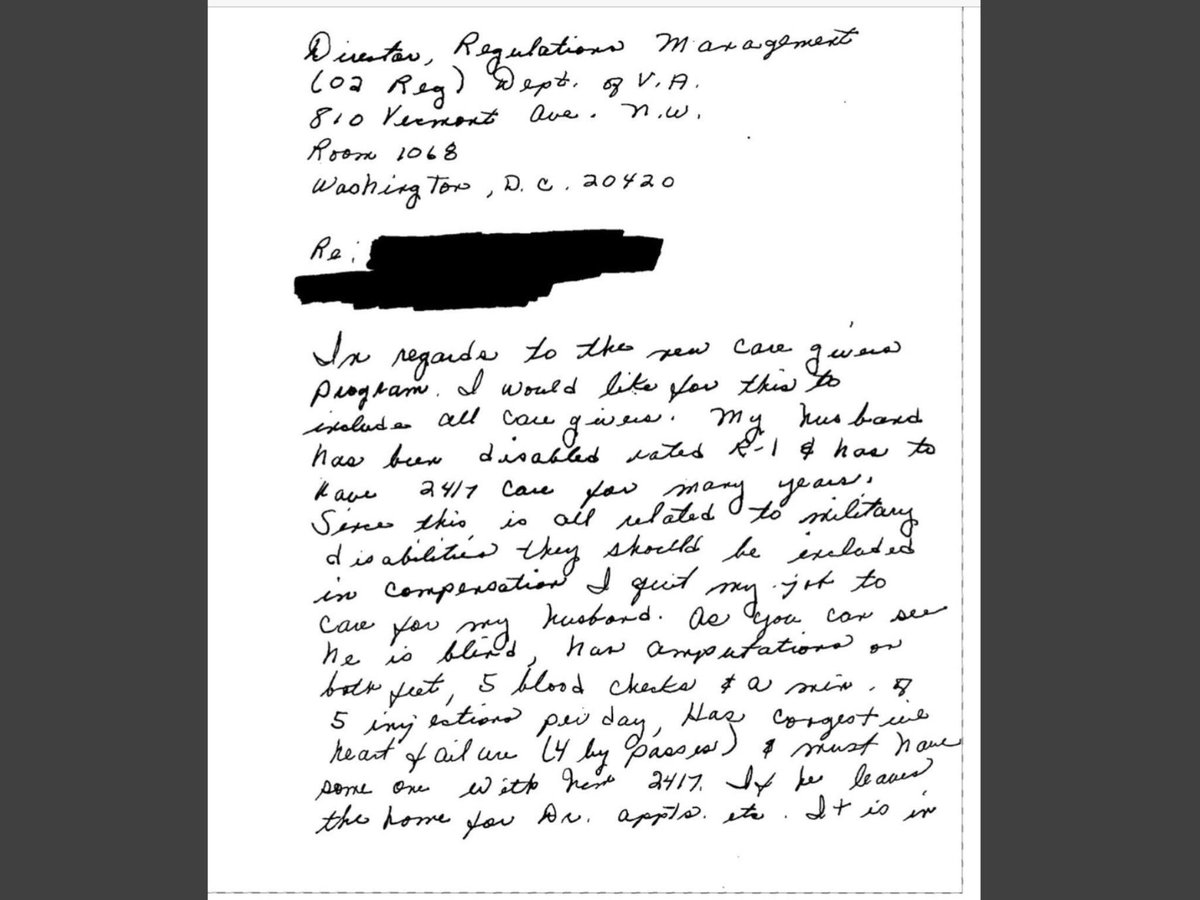 Director, Regulations Management
(02 Reg) Dept. of V.A.
810 Vermont Ave. N.W.
Room 1068
Washington, D.C. 20420
Re:
In regards to the new care givers
program. I would like for this to
include all care givers. My husband
has been disabled rated R-1 & has to
have 24/7 care for many years.
Since this is all related to military
disabilities they should be included
in compensation I quit my job to
care for my husband. As you can see
he is blind, has amputations on
both feet, 5 blood checks & a min. of
5 injections per day, Has congestive
heart failure (4 by passes) & must have
some one with him 24/7. If he leaves
the home for Dr. appts. etc. It is in